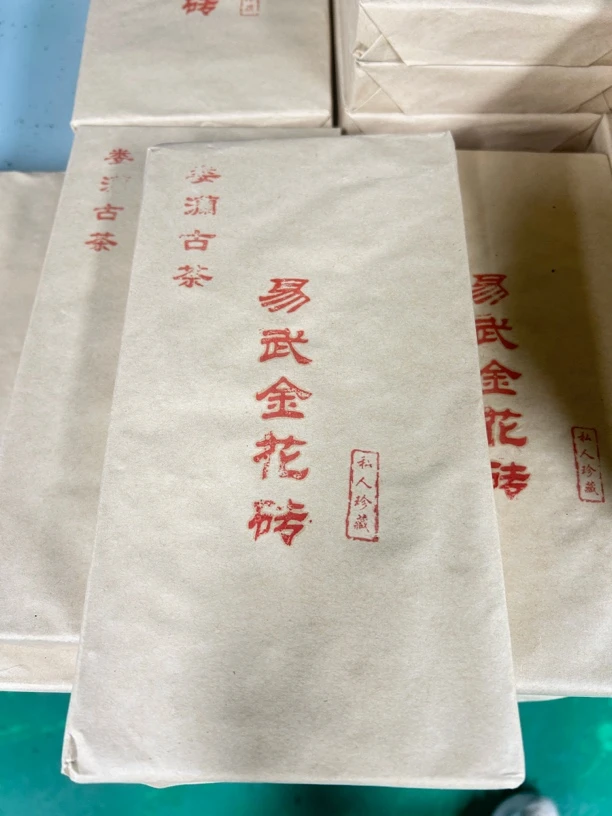 砖
古茶
娄澜古茶
易武金花砖
私人珍藏
易武金花砖
私人珍藏